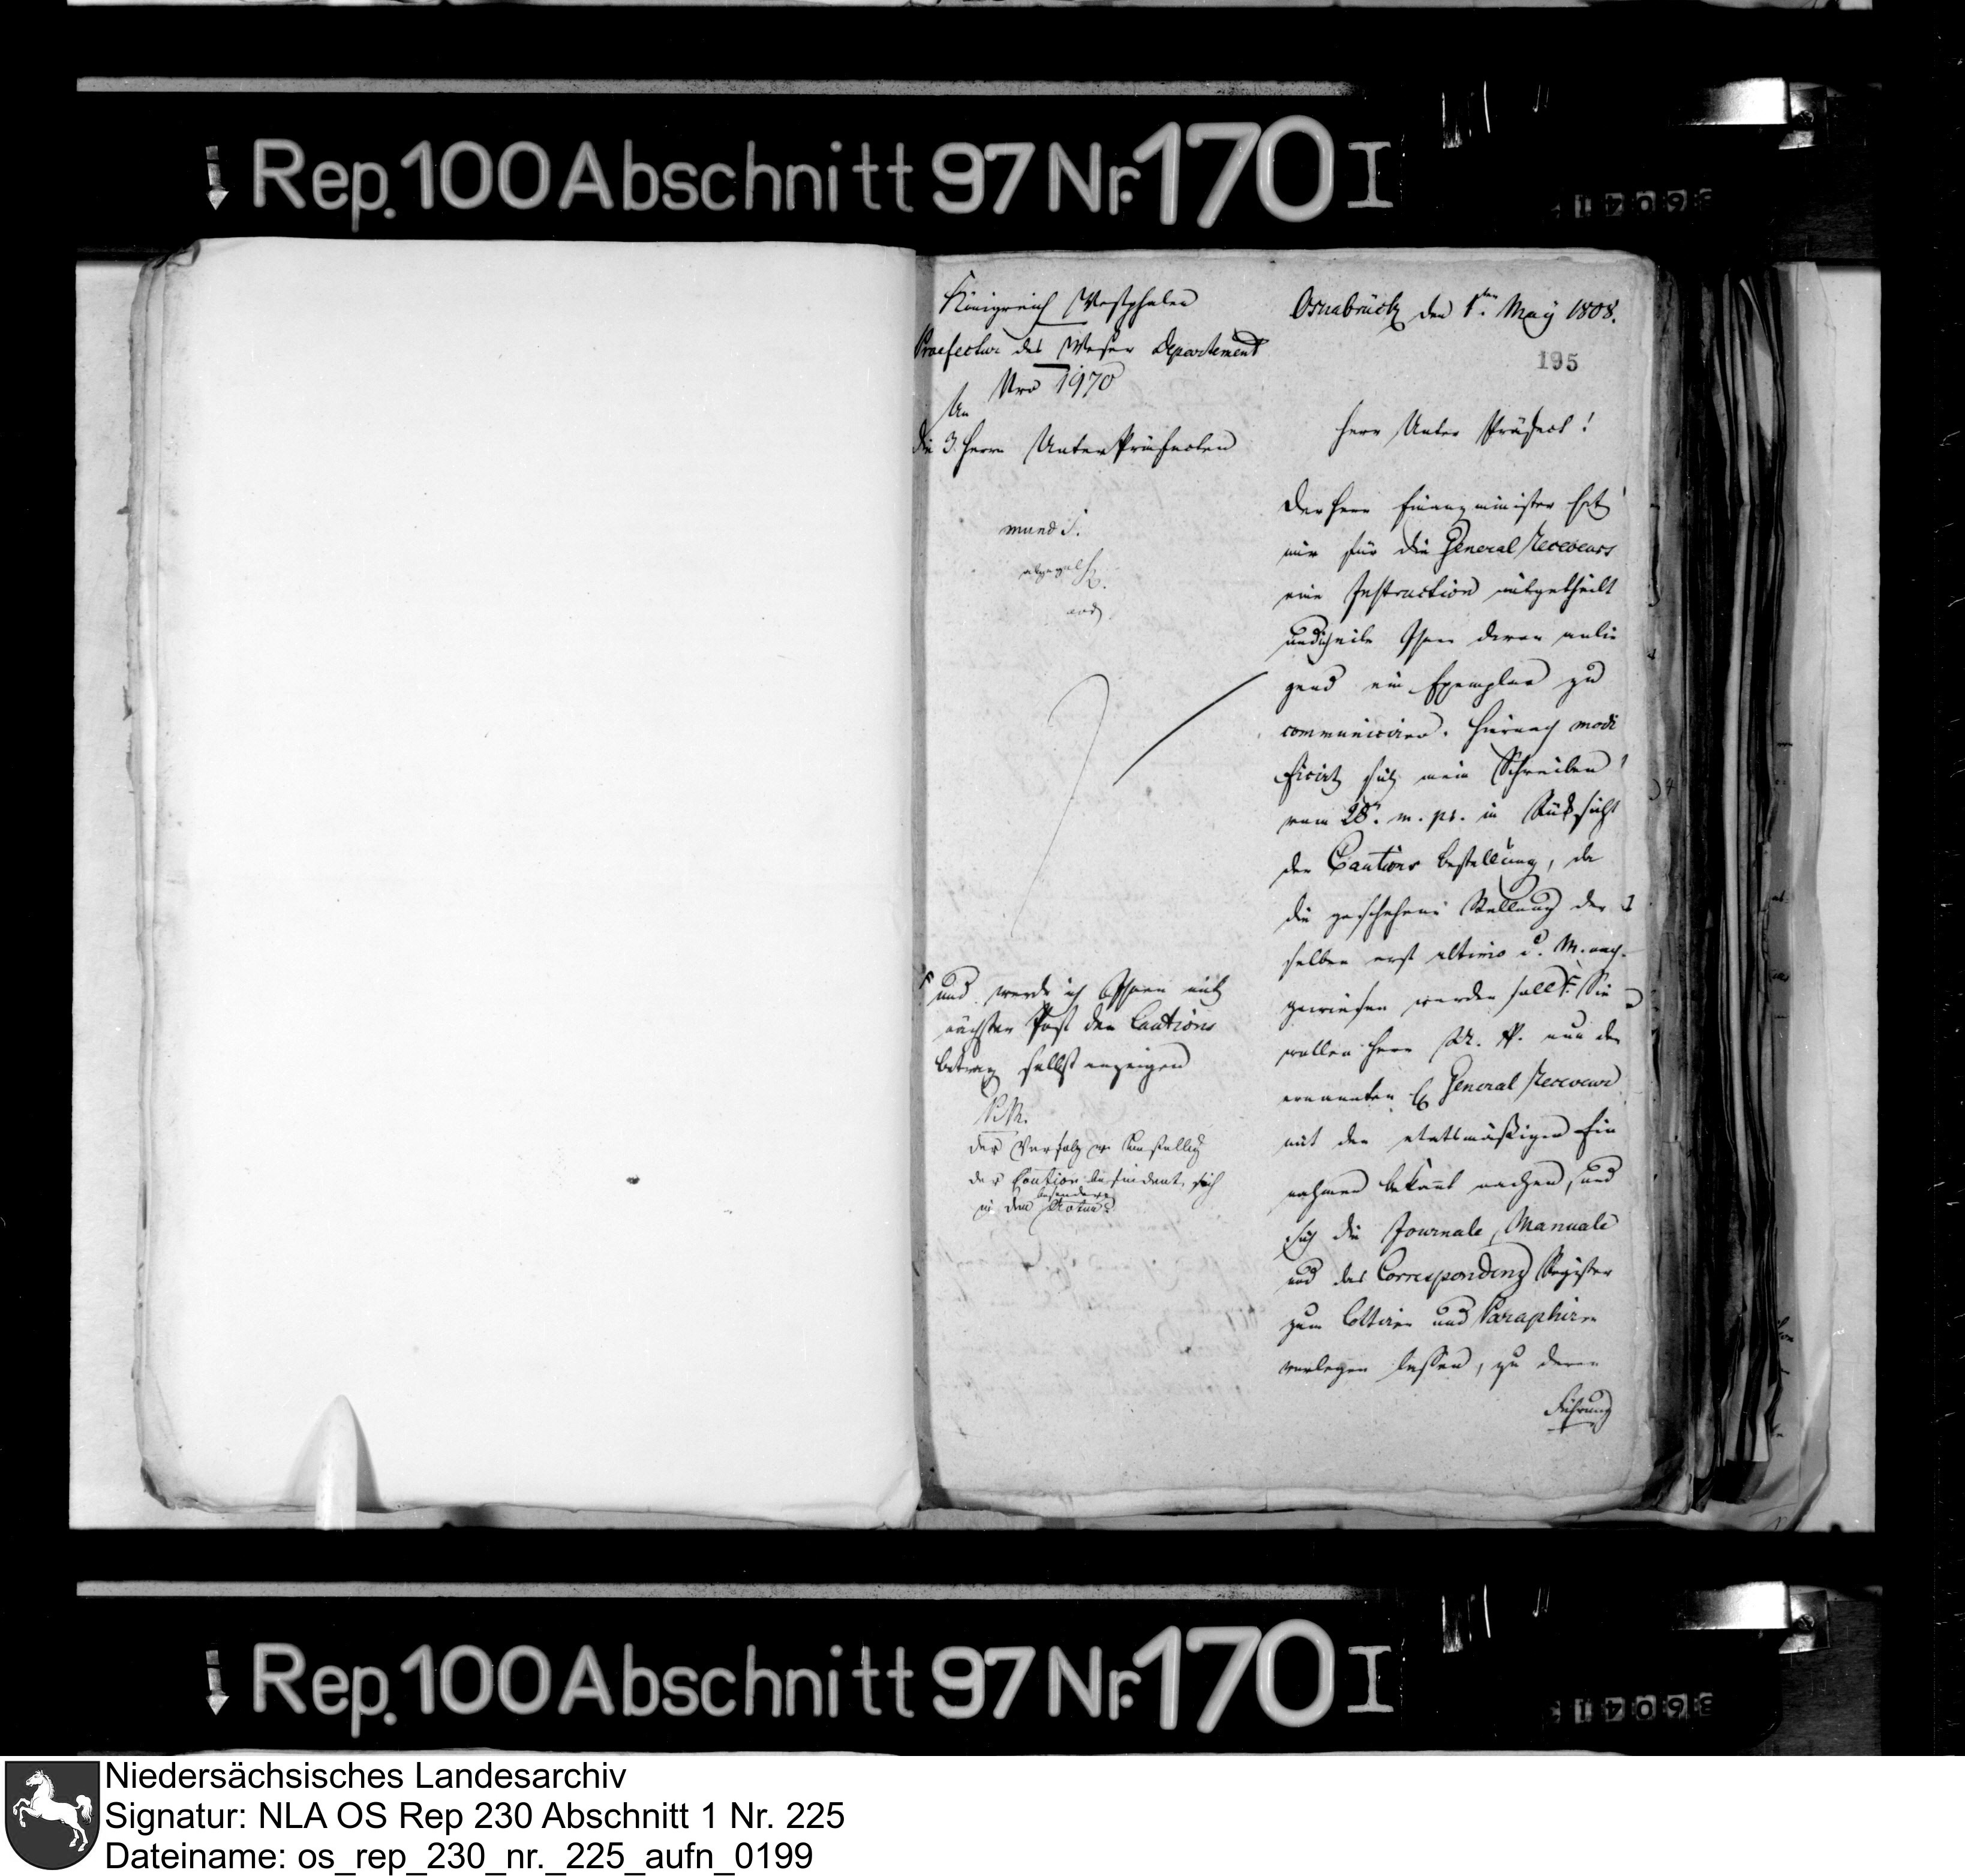 Rep. 100 Abschnitt 97 Nr. 170 I
Königreich Westphalen
Praefectur des Weser Departement
Nro 1970
An
die 3 Herrn Unter Präfecten
mund.
Osnabrück den 1ten May 1808.
195
Herr Unter Präfect!
Der Herr Finanzminister hat
mir für die General Receveurs
eine Instruction mitgetheilt
und ich eile Ihnen davon anlie
gend ein Exemplar zu
communiciren. Hiernach modi
ficirt sich mein Schreiben
vom 28. m. pr. in Rücksicht
der Cautions Bestellung, da
die geschehene Stellung der
selben erst ultimo d. M. nach-
gewiesen werden soll. Sie
wollen Herr U. P. nun den
ernannten General Receveur
mit den etatsmäßigen Ein
nahmen bekannt machen, und
sich die Journale, Manuale
und das Correspondenz Register
zum Cottiren und Paraphiren
vorlegen lassen, zu deren
Führung
und werde ich Ihnen mit
nächster Post den Cautions
betrag selbst anzeigen
N.B.
Der Verfolg
der Caution befindet sich
in den besondern Acten
Rep. 100 Abschnitt 97 Nr. 170 I
Niedersächsisches Landesarchiv
Signatur: NLA OS Rep 230 Abschnitt 1 Nr. 225
Dateiname: os_rep_230_nr._225_aufn_0199